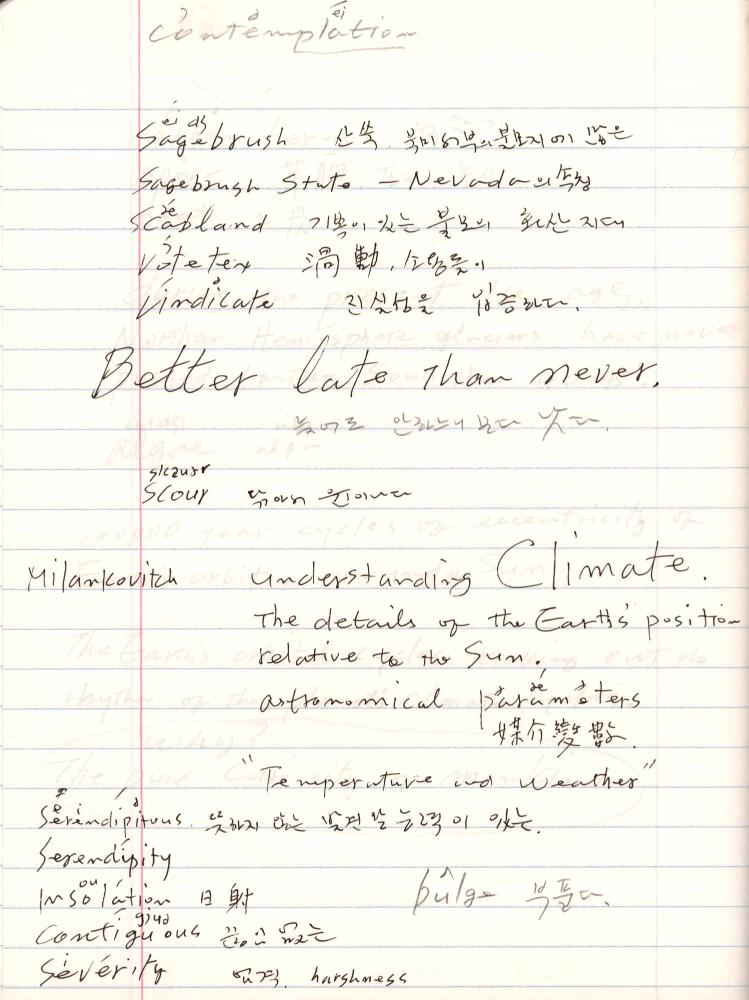 Contemplation
Sagebrush 산쑥. 북미서부의 불모지에 많은
Sagebrush State – Nevada의 속칭
Scabland 기복이 있는 불모의 화산 지대
Votetex 渦動, 소용돌이
Vindicate 진실성을 입증하다.
Better late than never.
늦어도 안하느니 보다 낫다.
skauər
Scour 닦아서 윤이나다
Milankovitch understanding Climate.
The details of the Earth's position
relative to the Sun.
astronomical parameters
媒介變數.
"Temperature and Weather"
Serendipitous. 뜻하지 않는 발견할 능력이 있는.
Serendipity
Insolation 日射 bulge 부풀다.
Contiguous 끊임 없는
Severity 엄격. harshness